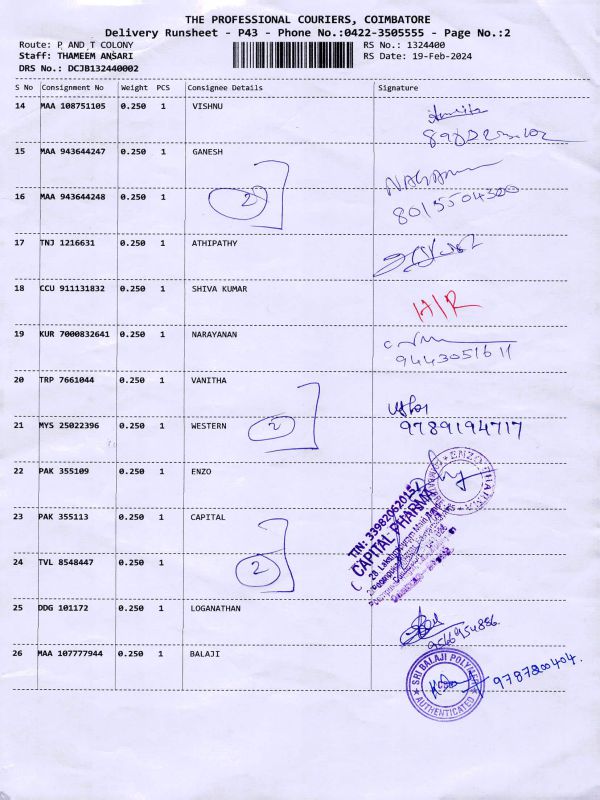 THE PROFESSIONAL COURIERS, COIMBATORE
Delivery Runsheet - P43 - Phone No.:0422-3505555 - Page No.:2
Route: P AND T COLONY
RS No.: 1324400
Staff: THAMEEM ANSARI
RS Date: 19-Feb-2024
DRS No.: DCJB132440002
S No Consignment No Weight PCS Consignee Details Signature
14 MAA 108751105 0.250 1 VISHNU
15 MAA 943644247 0.250 1 GANESH
16 MAA 943644248 0.250 1 2 8015504300
17 TNJ 1216631 0.250 1 ATHIPATHY
18 CCU 911131832 0.250 1 SHIVA KUMAR H/R
19 KUR 7000832641 0.250 1 NARAYANAN
9443051611
20 TRP 7661044 0.250 1 VANITHA
21 MYS 25022396 0.250 1 WESTERN 2 9789194717
22 PAK 355109 0.250 1 ENZO ENZO PHARMA
23 PAK 355113 0.250 1 CAPITAL
TIN: 33982062015
CAPITAL PHARMA
24 TVL 8548447 0.250 1 2
25 DDG 101172 0.250 1 LOGANATHAN
9566954886.
26 MAA 107777944 0.250 1 BALAJI
SRI BALAJI
AUTHENTICATED